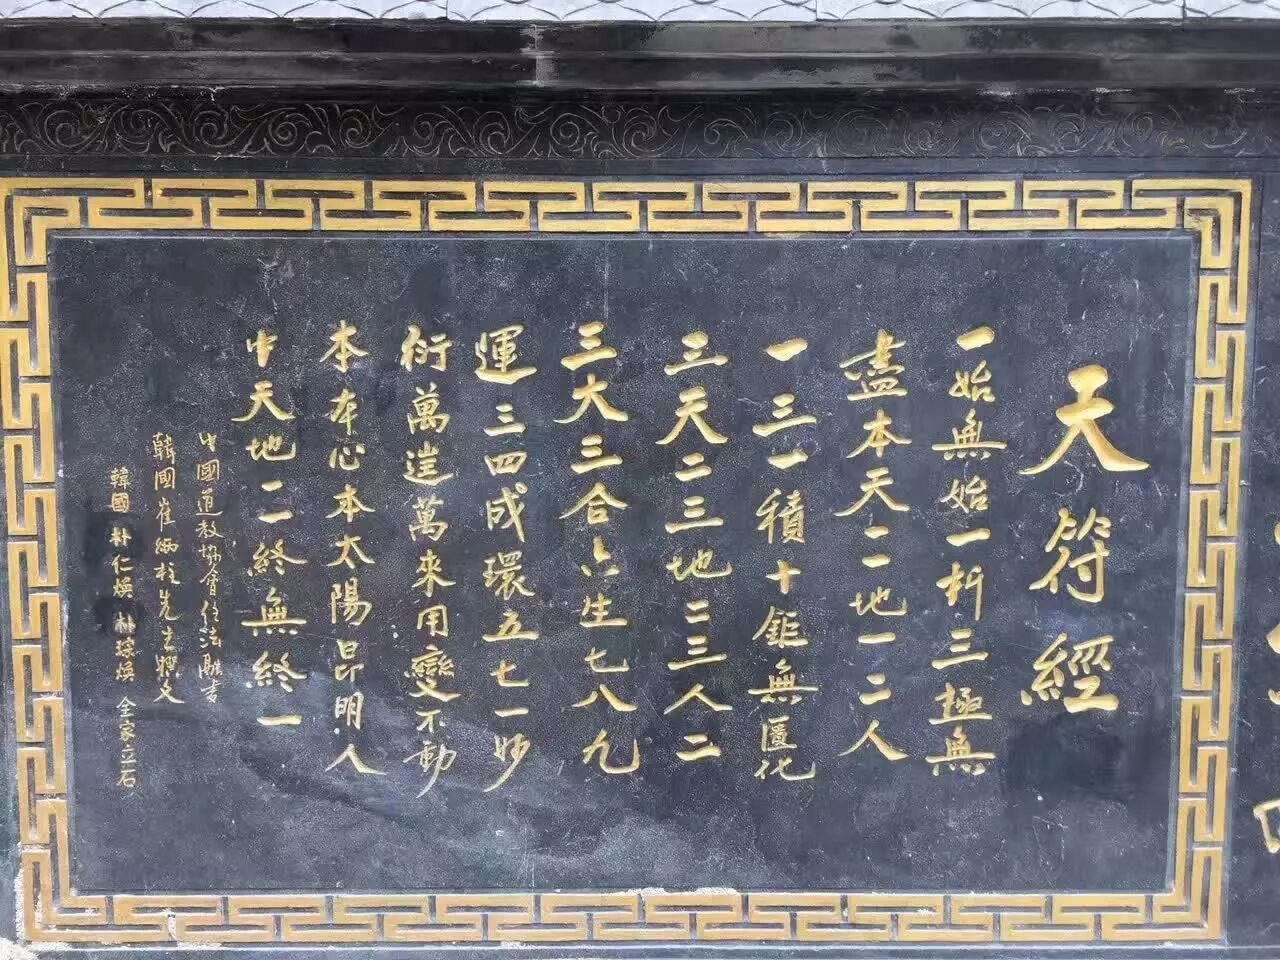 天符經
一始無始一析三極無
盡本天一一地一二人
一三一積十鉅無匱化
三天二三地二三人二
三大三合六生七八九
運三四成環五七一妙
衍萬迬萬來用變不動
本本心本太陽昂明人
中天地一一終無終一
中國道教協會任法融書
韓國崔炳柱先生撰文
韓國 朴仁煥 朴琮煥 全家立石